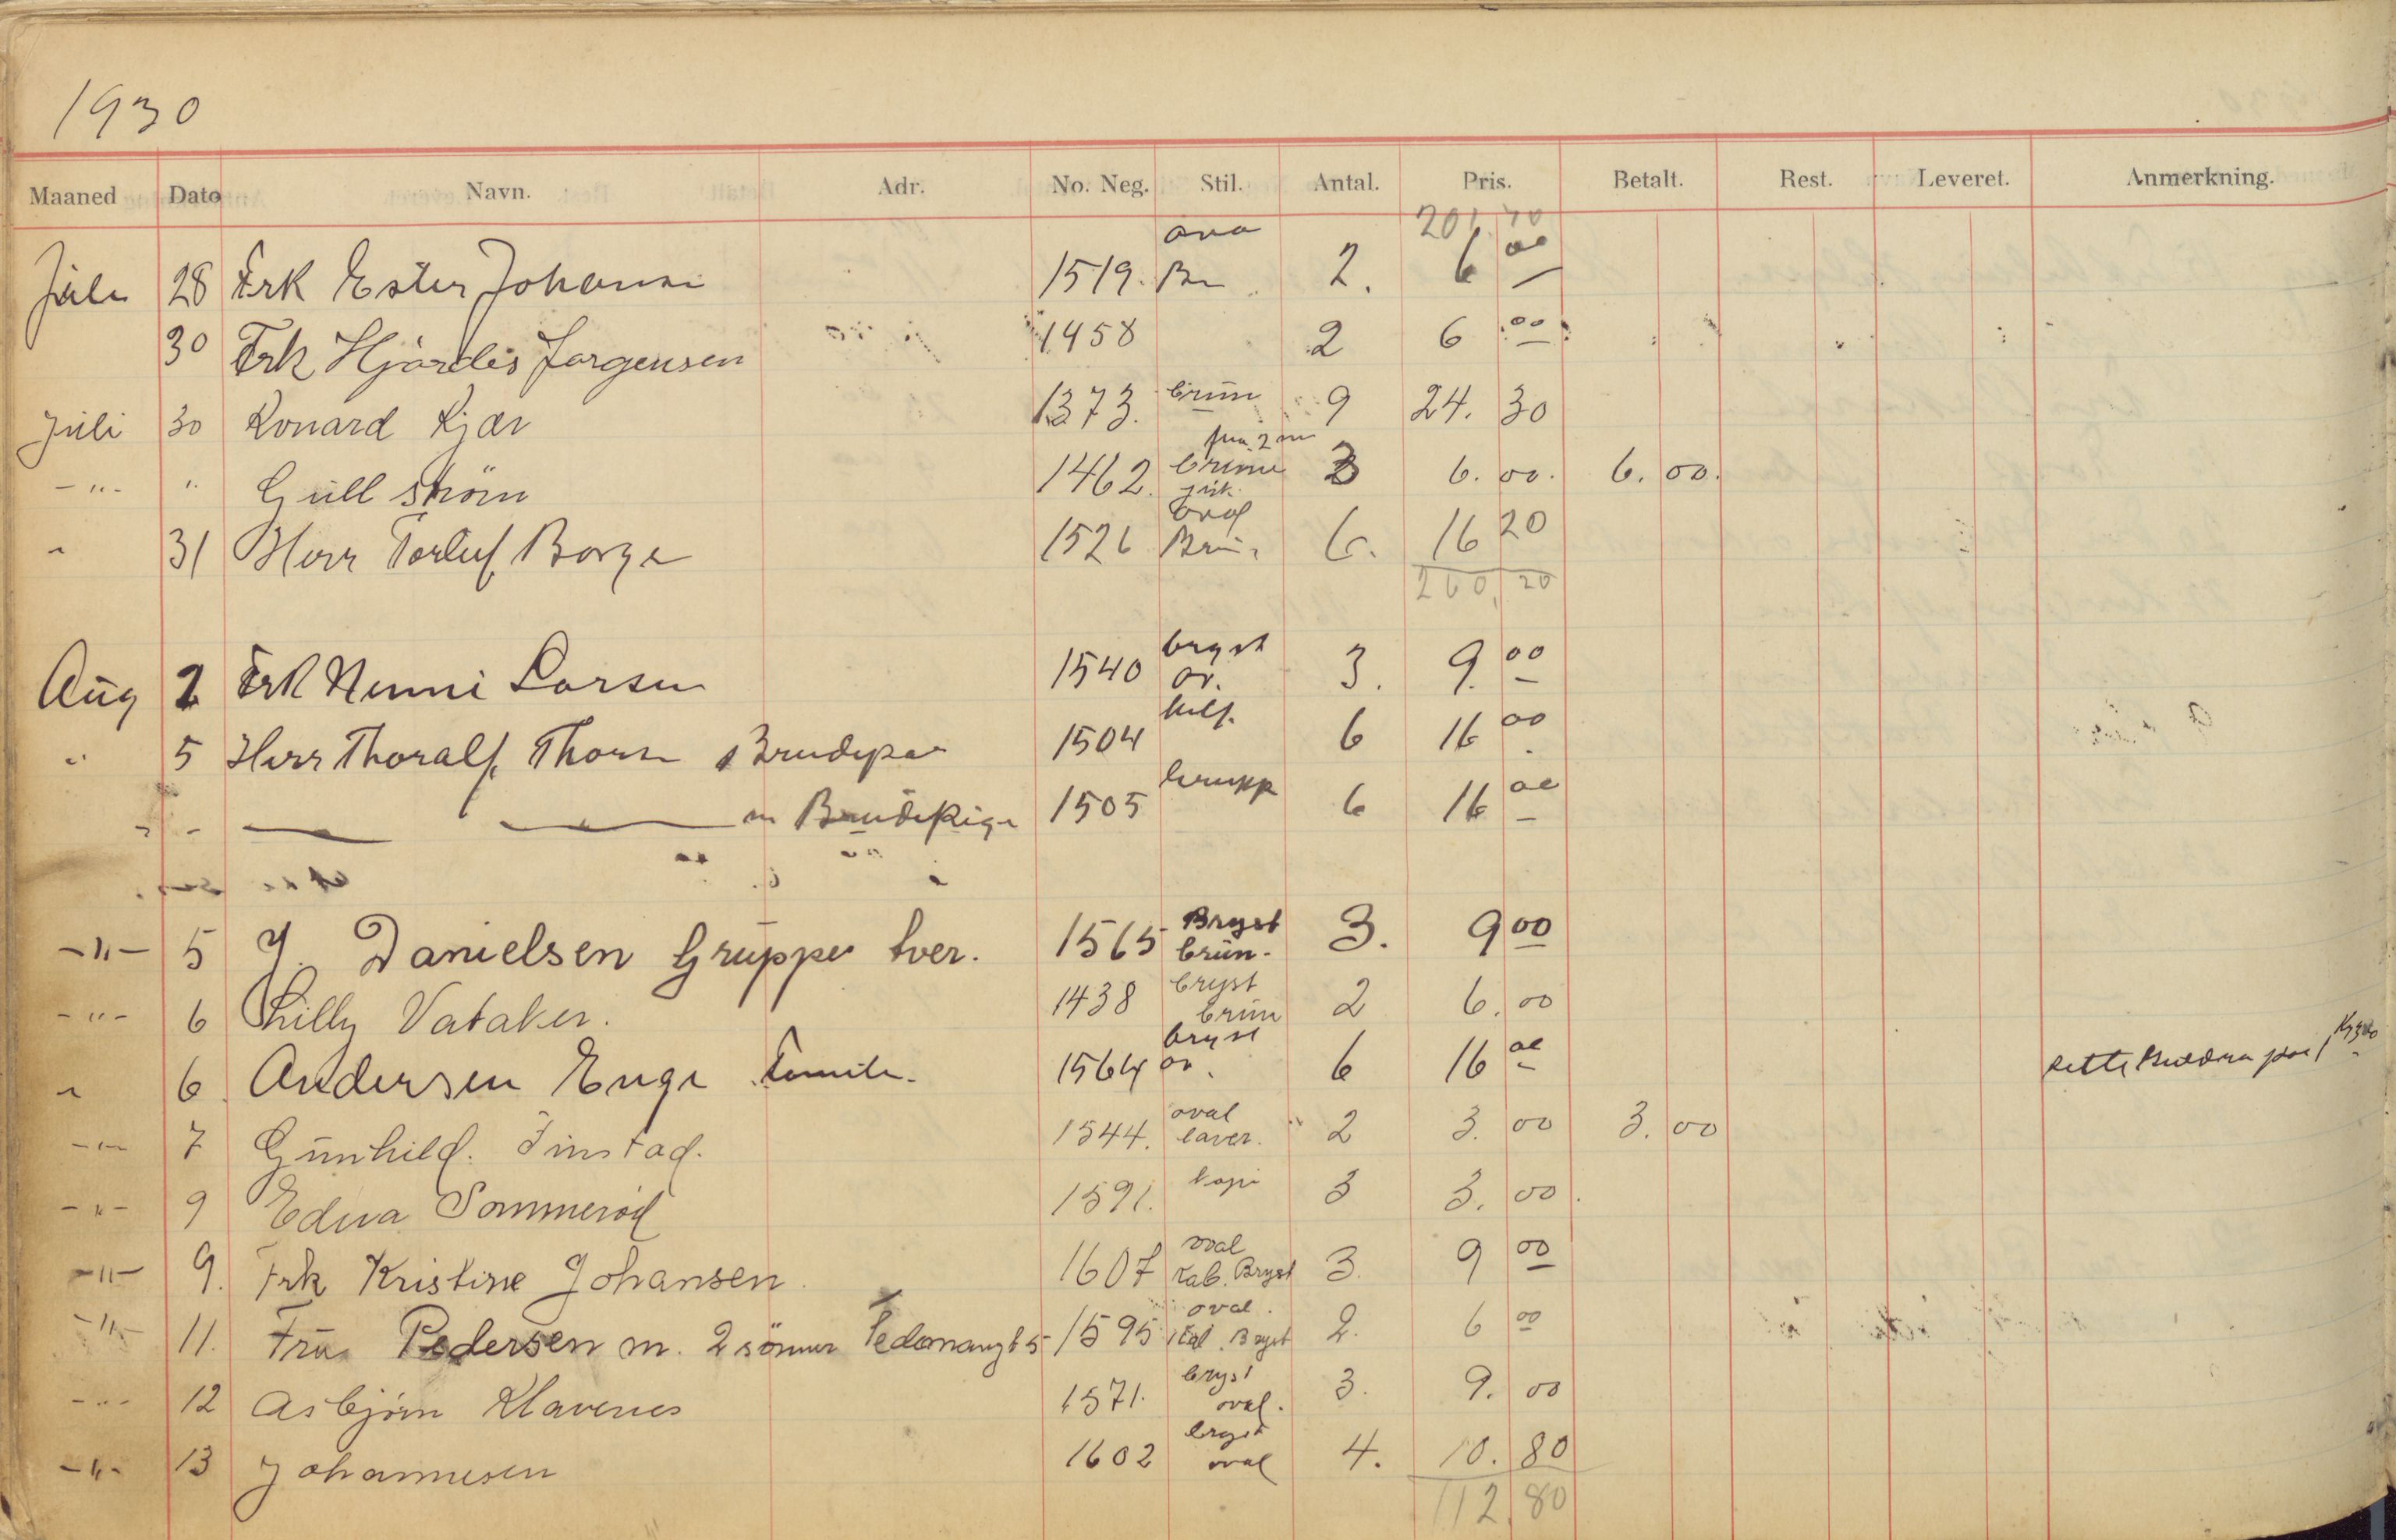 1930
Maaned Dato Navn. Adr. No. Neg. Stil. Antal. Pris. Betalt. Rest. Leveret. Anmerkning.
201 70
Juli 28 Frk Ester Johansen 1519. Br 2. 6 00
30 Frk Hjördis Jorgensen 1458 2 6 00
Juli 30 Konard Kjær 1373. brün 9 24. 30
-"- " Güll ström 1462. brüne 3 6. 00. 6. 00.
" 31 Herr Torluf Borge 1526 oval Brün 6. 16 20
260, 20
Aüg 2 Frk Nenni Larsen 1540 bryst ov. 3. 9. 00
" 5 Herr Thoralf Thorsen Brudepar 1504 hel f. 6 16 00
" - m Brüdepige 1505 Grupp 6 16 00
-"- 5 J. Danielsen Grüppe tver. 1565 Bryst brün. 3. 9 00
-"- 6 Lilly Vataker. 1438 bryst brün 2 6. 00
" 6 Andersen Enge Familie. 1564 bryst ov. 6 16 00 Kr 3.00
-"- 7 Günhild. Finstad. 1544. oval laver. 2 3. 00 3. 00
-"- 9 Edna Sommeröd 1591. kopi 3 3. 00.
-"- 9. Frk Kristine Johansen. 1607 oval Kab. Bryst 3. 9 00
-"- 11. Frü Pedersen m. 2 sönner 1595 oval. Kab. Bryst 2. 6 00
-"- 12 Asbjörn Klavenes 1571. bryst oval. 3. 9. 00
-"- 13 Johannesen 1602 bryst oval 4. 10. 80
112, 80